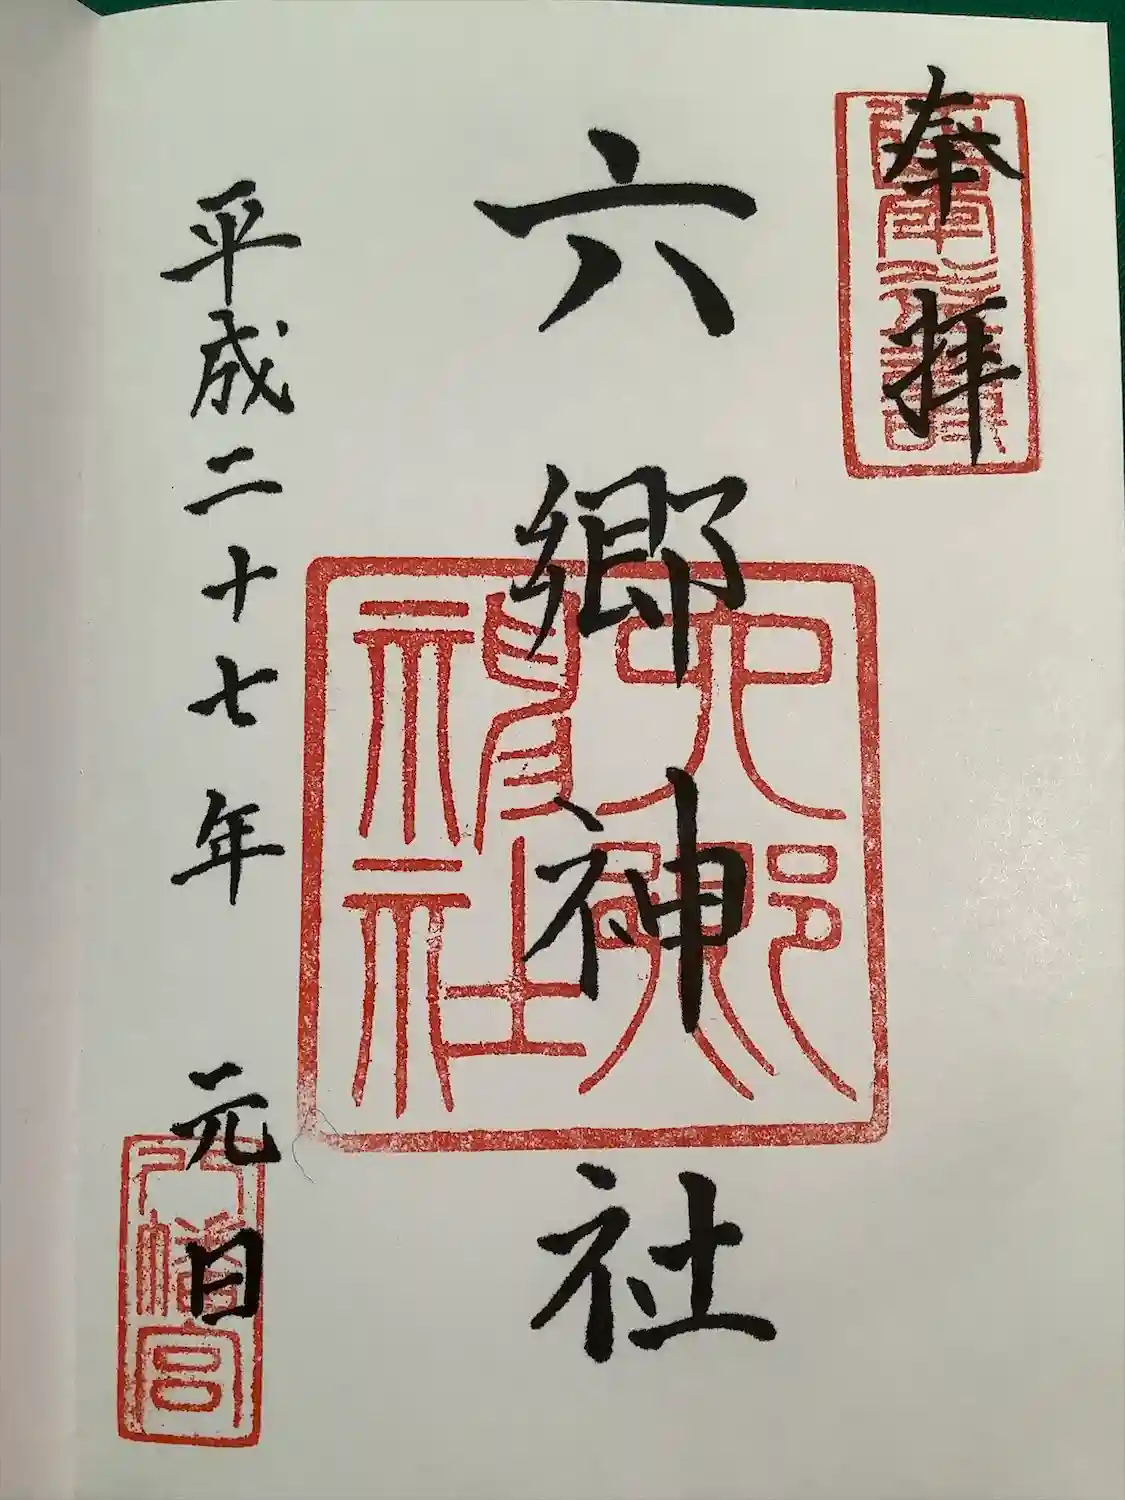 奉拝
六郷神社
六郷神社
平成二十七年 元日
八幡宮